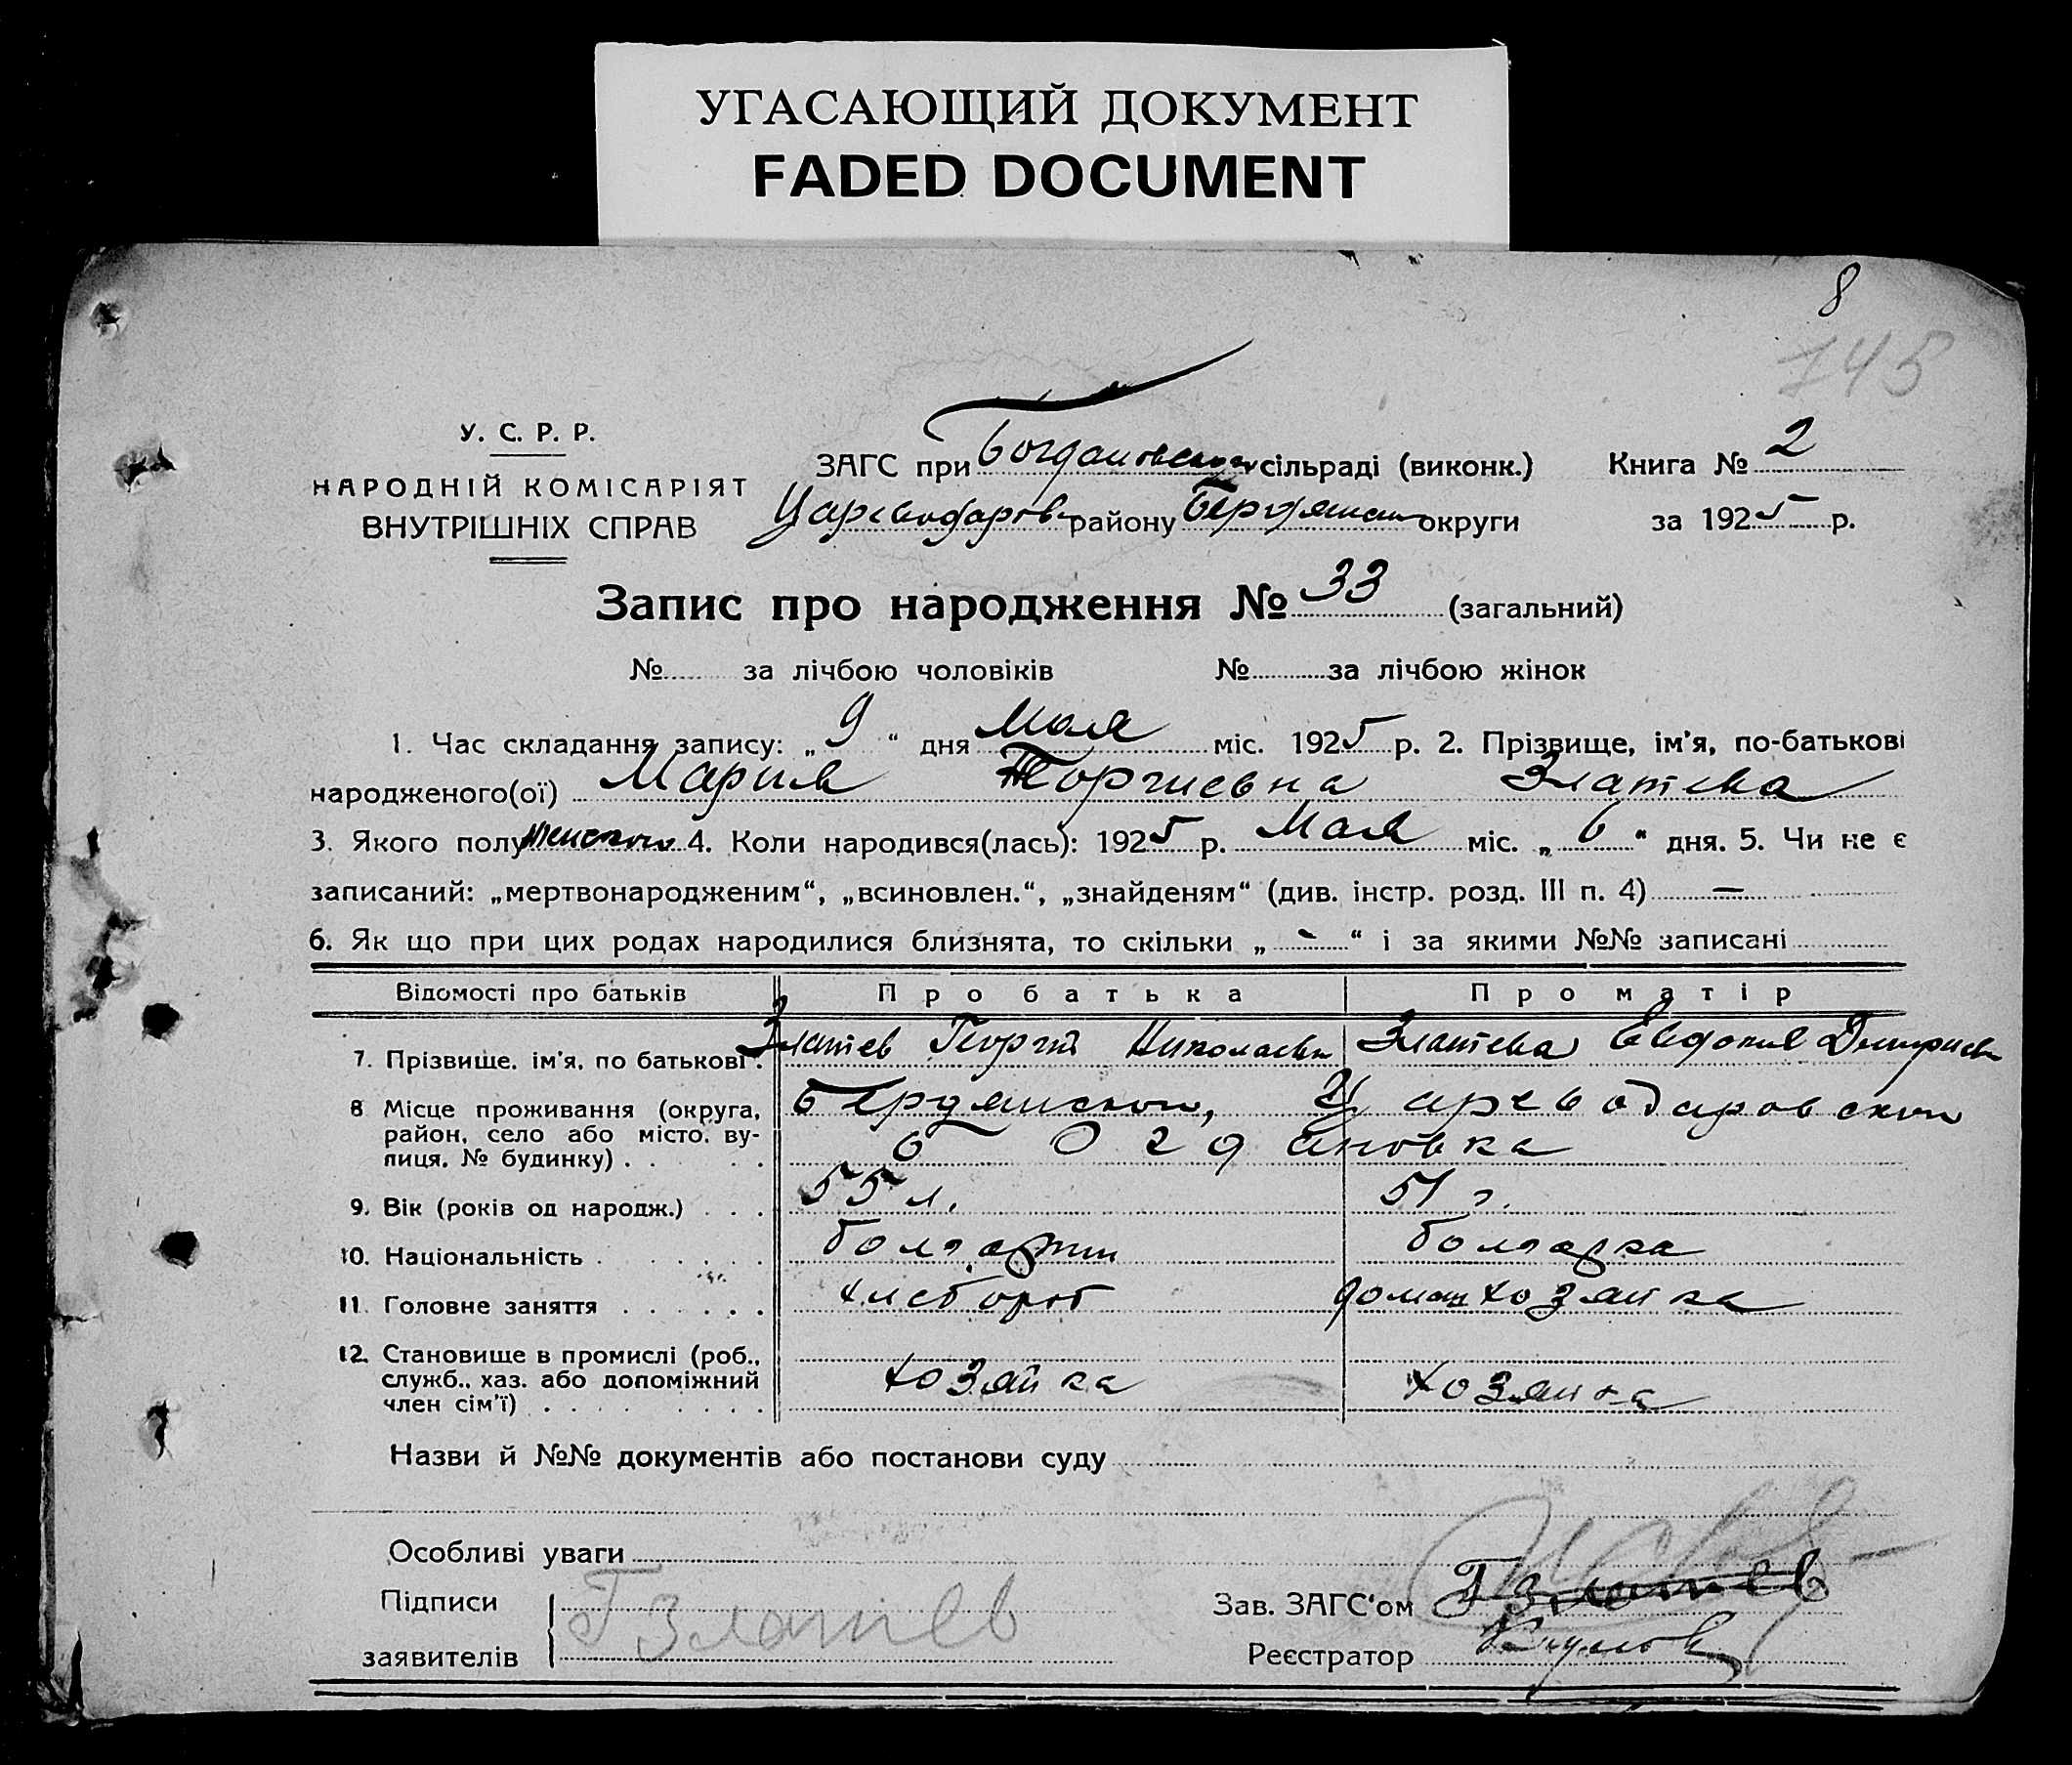 УГАСАЮЩИЙ ДОКУМЕНТ
FADED DOCUMENT
8
745
У. С. Р. Р.
НАРОДНІЙ КОМІСАРІЯТ
ВНУТРІШНІХ СПРАВ
ЗАГС при Богдановском сільраді (виконк.) Книга № 2
Цареводаров району Бердянском округи за 1925 р.
Запис про народження № 33 (загальний)
№ за лічбою чоловіків № за лічбою жінок
1. Час складання запису: „ 9 “ дня Мая міс. 1925 р. 2. Прізвище, ім'я, по-батькові
народженого(ої) Мария Георгиевна Златева
3. Якого полу женского 4. Коли народився(лась): 1925 р. Мая міс. „ 6 “ дня. 5. Чи не є
записаний: „мертвонародженим“, „всиновлен.“, „знайденям“ (див. інстр. розд. III п. 4) —
6. Як що при цих родах народилися близнята, то скільки „ - “ і за якими №№ записані
Відомості про батьків Про батька Про матір
7. Прізвище, ім'я, по батькові . Златев Георгій Николаевич Златева Евдокия Дмитриев
8 Місце проживання (округа, Бердянском, Цареводаровском
район, село або місто, ву-
лиця, № будинку) . . . . Богдановка
9. Вік (років од народж.) . . . 55 л. 51 г.
10. Національність . . . . . . болгарин болгарка
11. Головне заняття . . . . . . хлебороб домаш хозяйка
12. Становище в промислі (роб.,
служб., хаз. або допоміжний хозяйка хозяйка
член сім'ї) . . . . . . . . .
Назви й №№ документів або постанови суду
Особливі уваги
Підписи Г Златев Зав. ЗАГС'ом Г Златев
заявителів Реєстратор